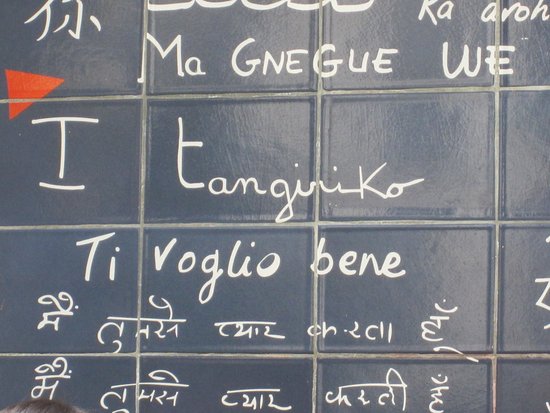 你 Ka aroh
Ma GNEGUE WE
I tangiriko
Ti voglio bene
मैं तुमसे प्यार करता
मैं तुमसे प्यार करती